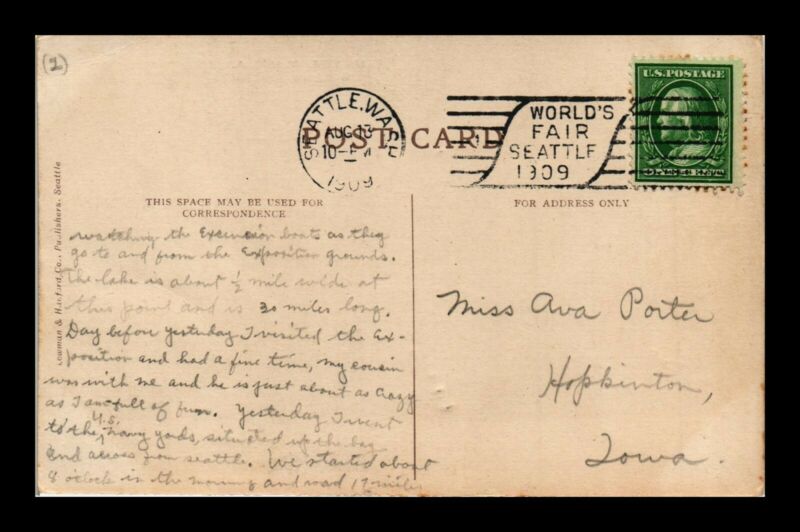 (2)
U.S. POSTAGE
SEATTLE, WASH.
AUG 13
10-PM
1909
WORLD'S
FAIR
SEATTLE
1909
POST CARD
THIS SPACE MAY BE USED FOR
CORRESPONDENCE
FOR ADDRESS ONLY
Lowman & Hanford Co., Publishers, Seattle
watching the Excursion boats as they
go to and from the Exposition grounds.
The lake is about ½ mile wide at
this point and is 30 miles long.
Day before yesterday I visited the Ex-
position and had a fine time, my cousin
was with me and he is just about as crazy
as I am full of fun. Yesterday I went
to the U.S. navy yards, situated up the bay
and across from seattle. We started about
8 oclock in the morning and road 17 miles
Miss Ava Porter
Hopkinton,
Iowa.